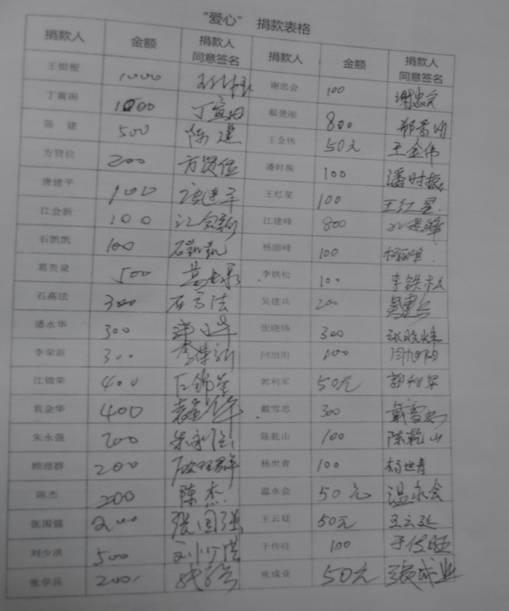 “爱心” 捐款表格
捐款人 金额 捐款人同意签名 捐款人 金额 捐款人同意签名
1000 谢忠会 100
丁寅雨 1000 丁寅雨 800
陈建 500 陈建 王金伟 50元 王金伟
方贤位 200 方贤位 潘时振 100 潘时振
唐建平 100 唐建平 王红星 100 王红星
江会新 100 江会新 江建峰 800 江建峰
石凯凯 100 石凯凯 杨丽峰 100
葛贵泉 500 李铁松 100 李铁松
石高法 300 石高法 吴建兵 200 吴建兵
潘水华 300 张晓炜 300
李荣新 300 李荣新 闫旭阳 100 闫旭阳
江锦荣 400 江锦荣 郭利军 50元 郭利军
袁金华 400 袁金华 戴雪忠 300 戴雪忠
朱永强 200 朱永强 陈乾山 100 陈乾山
顾理群 200 顾理群 杨世青 100 杨世青
陈杰 200 陈杰 温永会 50元 温永会
张国强 200 张国强 王云廷 50元 王云廷
刘少洪 500 刘少洪 于传旺 100 于传旺
张学兵 200 张成业 50元 张成业